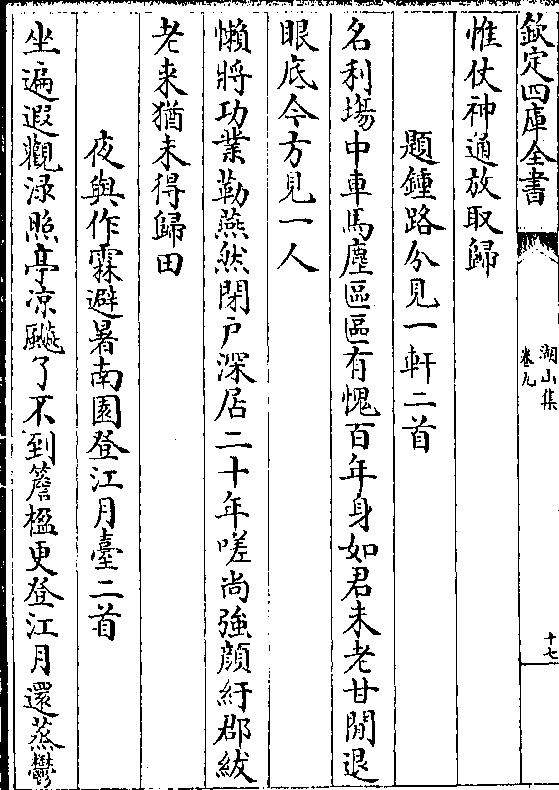 欽定四庫全書
湖山集
卷九
十七
惟仗神通放取歸
題鍾路分見一軒二首
名利場中車馬塵區區有愧百年身如君未老甘閒退
眼底今方見一人
懶將功業勒燕然閉戸深居二十年嗟尚強顔紆郡紱
老来猶未得歸田
夜與作霖避暑南園登江月臺二首
坐遍遐觀渌照亭凉颸了不到簷楹更登江月還蒸鬱